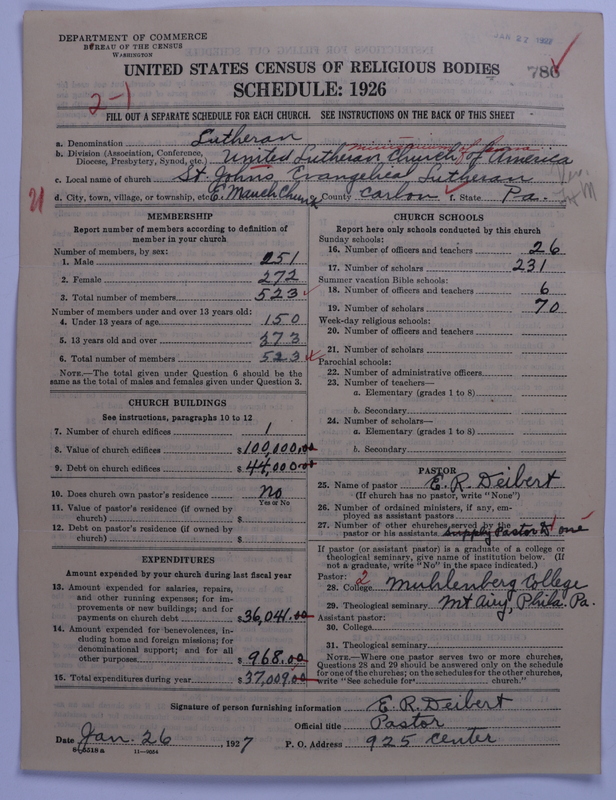 DEPARTMENT OF COMMERCE
BUREAU OF THE CENSUS
WASHINGTON
JAN 27 1927
UNITED STATES CENSUS OF RELIGIOUS BODIES
786
SCHEDULE: 1926
2-1
FILL OUT A SEPARATE SCHEDULE FOR EACH CHURCH. SEE INSTRUCTIONS ON THE BACK OF THIS SHEET
a. Denomination Lutheran
b. Division (Association, Conference, Diocese, Presbytery, Synod, etc.) United Lutheran Church of America
c. Local name of church St. John's Evangelical Lutheran
21
d. City, town, village, or township, etc. E. Mauch Chunk County Carbon f. State Pa.
MEMBERSHIP
Report number of members according to definition of
member in your church
Number of members, by sex:
1. Male 251
2. Female 272
3. Total number of members 523
Number of members under and over 13 years old:
4. Under 13 years of age 150
5. 13 years old and over 373
6. Total number of members 523
NOTE.—The total given under Question 6 should be
same as the total of males and females given under Question 3.
CHURCH BUILDINGS
See instructions, paragraphs 10 to 12
7. Number of church edifices 1
8. Value of church edifices $100,000.00
9. Debt on church edifices $44,000.00
10. Does church own pastor's residence No
Yes or No
11. Value of pastor's residence (if owned by
church) $
12. Debt on pastor's residence (if owned by
church) $
EXPENDITURES
Amount expended by your church during last fiscal year
13. Amount expended for salaries, repairs,
and other running expenses; for im-
provements or new buildings; and for
payments on church debt $36,041.00
14. Amount expended for benevolences, in-
cluding home and foreign missions; for
denominational support; and for all
other purposes $968.00
15. Total expenditures during year $37,009.00
CHURCH SCHOOLS
Report here only schools conducted by this church
Sunday schools:
16. Number of officers and teachers 26
17. Number of scholars 231
Summer vacation Bible schools:
18. Number of officers and teachers 6
19. Number of scholars 70
Week-day religious schools:
20. Number of officers and teachers
21. Number of scholars
Parochial schools:
22. Number of administrative officers
23. Number of teachers—
a. Elementary (grades 1 to 8)
b. Secondary
24. Number of scholars—
a. Elementary (grades 1 to 8)
b. Secondary
PASTOR
25. Name of pastor E. R. Deibert
(If church has no pastor, write "None")
26. Number of ordained ministers, if any, em-
ployed as assistant pastors
27. Number of other churches served by the
pastor or his assistants Supply Pastor to one
If pastor (or assistant pastor) is a graduate of a college or
theological seminary, give name of institution below. (If
not a graduate, write "No" in the space indicated.)
Pastor: 2
28. College Muhlenberg College
29. Theological seminary Mt Airy, Phila. Pa.
Assistant pastor:
30. College
31. Theological seminary
NOTE.—Where one pastor serves two or more churches,
Questions 28 and 29 should be answered only on the schedule
for one of the churches; on the schedules for the other churches,
write "See schedule for church."
Signature of person furnishing information E. R. Deibert
Official title Pastor
Date Jan. 26, 1927 P. O. Address 925 Center
8-5518a 11-9054